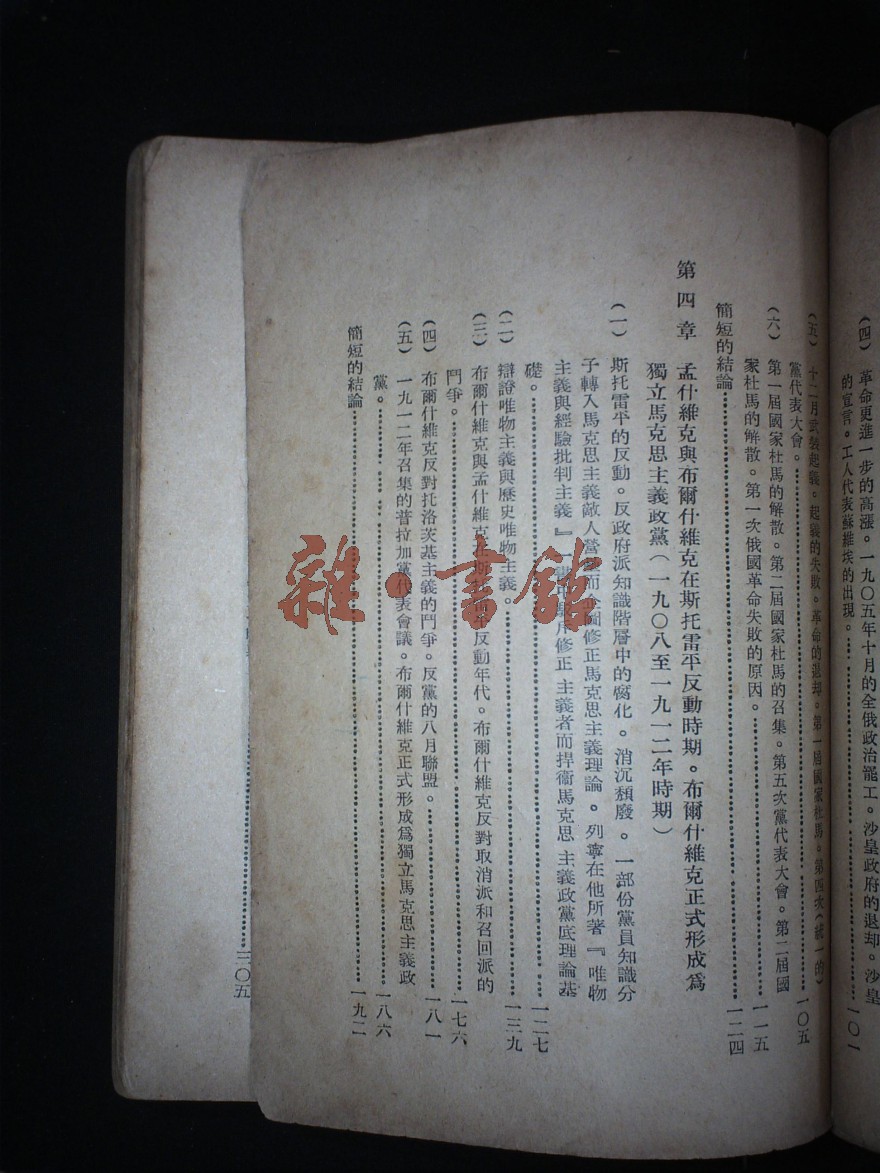 (四) 革命更進一步的高漲。一九〇五年十月的全俄政治罷工。沙皇政府的退却。沙皇
的宣言。工人代表蘇維埃的出現。……一〇一
(五) 十二月武裝起義。起義的失敗。革命的退却。第一屆國家杜馬。第四次(統一的)
黨代表大會。……一〇五
(六) 第一屆國家杜馬的解散。第二屆國家杜馬的召集。第五次黨代表大會。第二屆國
家杜馬的解散。第一次俄國革命失敗的原因。……一一五
簡短的結論……一二四
第四章 孟什維克與布爾什維克在斯托雷平反動時期。布爾什維克正式形成爲
獨立馬克思主義政黨(一九〇八至一九一二年時期)
(一) 斯托雷平的反動。反政府派知識階層中的腐化。消沉頹廢。一部份黨員知識分
子轉入馬克思主義敵人營而企圖修正馬克思主義理論。列寧在他所著『唯物
主義與經驗批判主義』一斥修正主義者而捍衞馬克思主義政黨底理論基
礎。……一二七
(二) 辯證唯物主義與歷史唯物主義。……一三九
(三) 布爾什維克與孟什維克在斯托雷平反動年代。布爾什維克反對取消派和召回派的
鬥爭。……一七六
(四) 布爾什維克反對托洛茨基主義的鬥爭。反黨的八月聯盟。……一八一
(五) 一九一二年召集的普拉加黨代表會議。布爾什維克正式形成爲獨立馬克思主義政
黨。……一八六
簡短的結論……一九二
三〇五
雜·書館